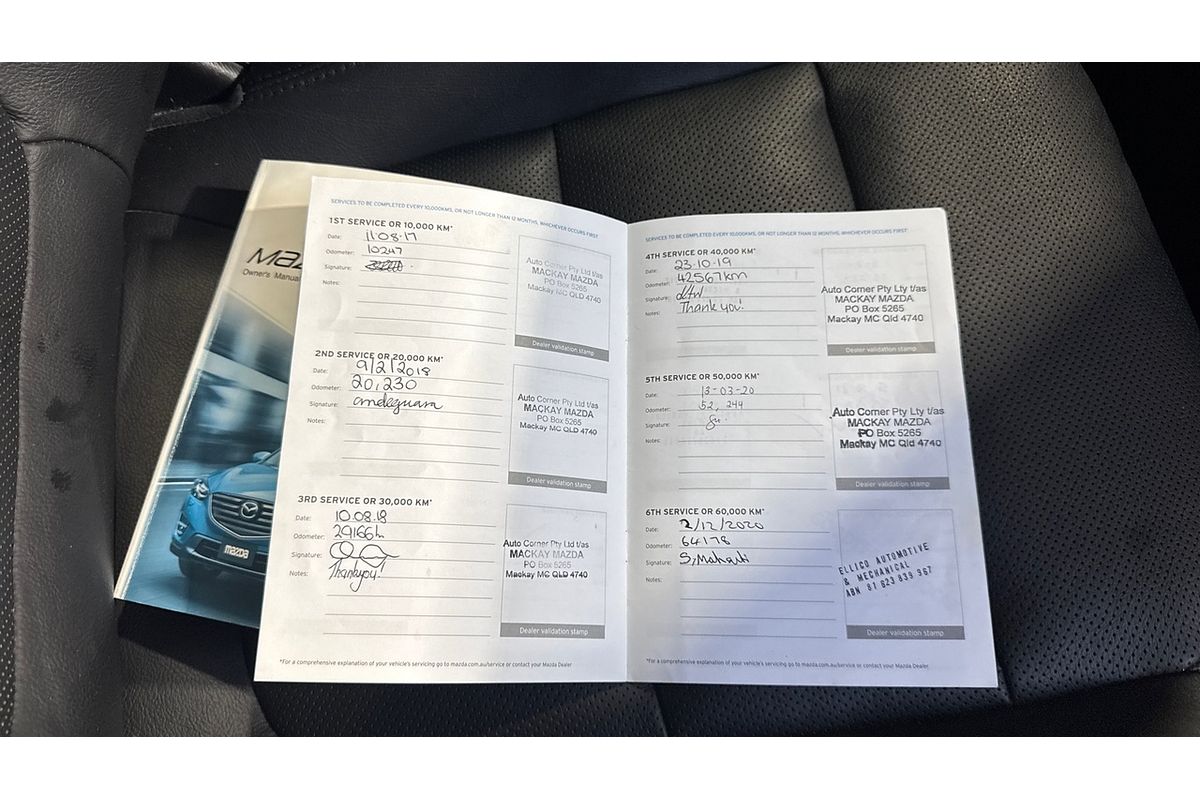 Maz
Owner's Manual
mazda
SERVICES TO BE COMPLETED EVERY 10,000KMS, OR NOT LONGER THAN 12 MONTHS, WHICHEVER OCCURS FIRST
1ST SERVICE OR 10,000 KM*
Date: 11.08.17
Odometer: 10247
Signature:
Notes:
Auto Corner Pty Ltd t/as
MACKAY MAZDA
PO Box 5265
Mackay MC QLD 4740
Dealer validation stamp
2ND SERVICE OR 20,000 KM*
Date: 9/2/2018
Odometer: 20,230
Signature:
Notes:
Auto Corner Pty Ltd t/as
MACKAY MAZDA
PO Box 5265
Mackay MC QLD 4740
Dealer validation stamp
3RD SERVICE OR 30,000 KM*
Date: 10.08.18
Odometer: 29166
Signature:
Notes: Thankyou!
Auto Corner Pty Ltd t/as
MACKAY MAZDA
PO Box 5265
Mackay MC QLD 4740
Dealer validation stamp
*For a comprehensive explanation of your vehicle's servicing go to mazda.com.au/service or contact your Mazda Dealer
SERVICES TO BE COMPLETED EVERY 10,000KMS, OR NOT LONGER THAN 12 MONTHS, WHICHEVER OCCURS FIRST
4TH SERVICE OR 40,000 KM*
Date: 23.10.19
Odometer: 42567km
Signature:
Notes: Thank you!
Auto Corner Pty Lty t/as
MACKAY MAZDA
PO Box 5265
Mackay MC Qld 4740
Dealer validation stamp
5TH SERVICE OR 50,000 KM*
Date: 13-03-20
Odometer: 52,244
Signature:
Notes:
Auto Corner Pty Lty t/as
MACKAY MAZDA
PO Box 5265
Mackay MC Qld 4740
Dealer validation stamp
6TH SERVICE OR 60,000 KM*
Date: 2/12/2020
Odometer: 64178
Signature:
Notes:
ELLICO AUTOMOTIVE
& MECHANICAL
ABN 81 623 839 967
Dealer validation stamp
*For a comprehensive explanation of your vehicle's servicing go to mazda.com.au/service or contact your Mazda Dealer